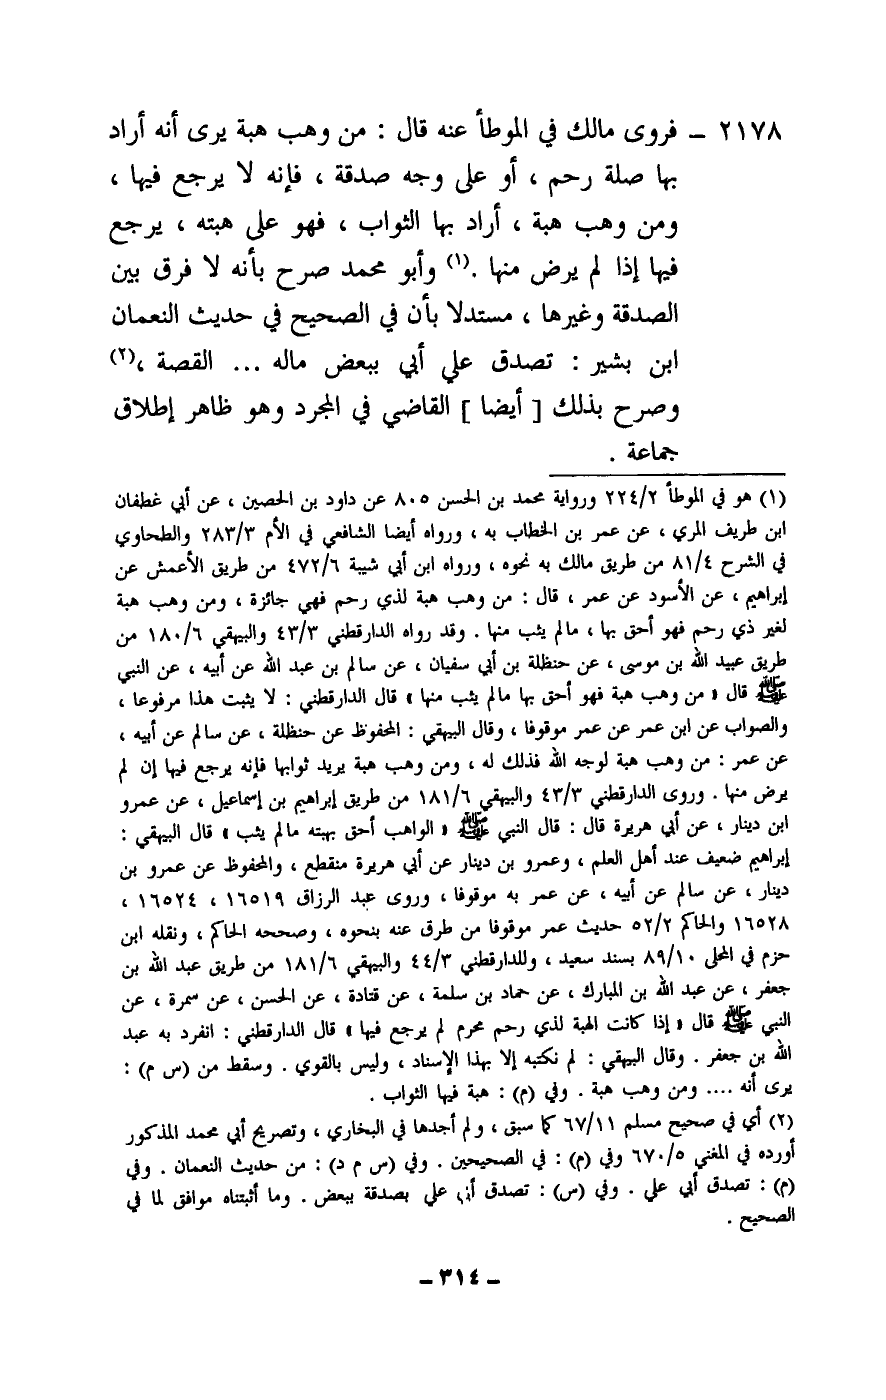 ٢١٧٨ ــ فروى مالك في الموطأ عنه قال : من وهب هبة يرى أنه أراد
بها صلة رحم ، أو على وجه صدقة ، فإنه لا يرجع فيها ،
ومن وهب هبة ، أراد بها الثواب ، فهو على هبته ، يرجع
فيها إذا لم يرض منها .(١) وأبو محمد صرح بأنه لا فرق بين
الصدقة وغيرها ، مستدلا بأن في الصحيح في حديث النعمان
ابن بشير : تصدق علي أبي ببعض ماله ... القصة ،(٢)
وصرح بذلك [ أيضا ] القاضي في المجرد وهو ظاهر إطلاق
جماعة .
(١) هو في الموطأ ٢٢٤/٢ ورواية محمد بن الحسن ٨٠٥ عن داود بن الحصين ، عن أبي غطفان
ابن طريف المري ، عن عمر بن الخطاب به ، ورواه أيضا الشافعي في الأم ٢٨٣/٣ والطحاوي
في الشرح ٨١/٤ من طريق مالك به نحوه ، ورواه ابن أبي شيبة ٤٧٢/٦ من طريق الأعمش عن
إبراهيم ، عن الأسود عن عمر ، قال : من وهب هبة لذي رحم فهي جائزة ، ومن وهب هبة
لغير ذي رحم فهو أحق بها ، مالم يثب منها . وقد رواه الدارقطني ٤٣/٣ والبيهقي ١٨٠/٦ من
طريق عبيد الله بن موسى ، عن حنظلة بن أبي سفيان ، عن سالم بن عبد الله عن أبيه ، عن النبي
ﷺ قال « من وهب هبة فهو أحق بها مالم يثب منها » قال الدارقطني : لا يثبت هذا مرفوعا ،
والصواب عن ابن عمر عن عمر موقوفا ، وقال البيهقي : المحفوظ عن حنظلة ، عن سالم عن أبيه ،
عن عمر : من وهب هبة لوجه الله فذلك له ، ومن وهب هبة يريد ثوابها فإنه يرجع فيها إن لم
يرض منها . وروى الدارقطني ٤٣/٣ والبيهقي ١٨١/٦ من طريق إبراهيم بن إسماعيل ، عن عمرو
ابن دينار ، عن أبي هريرة قال : قال النبي ﷺ « الواهب أحق بهبته مالم يثب » قال البيهقي :
إبراهيم ضعيف عند أهل العلم ، وعمرو بن دينار عن أبي هريرة منقطع ، والمحفوظ عن عمرو بن
دينار ، عن سالم عن أبيه ، عن عمر به موقوفا ، وروى عبد الرزاق ١٦٥١٩ ، ١٦٥٢٤ ،
١٦٥٢٨ والحاكم ٥٢/٢ حديث عمر موقوفا من طرق عنه بنحوه ، وصححه الحاكم ، ونقله ابن
حزم في المحلى ٨٩/١٠ بسند سعيد ، وللدارقطني ٤٤/٣ والبيهقي ١٨١/٦ من طريق عبد الله بن
جعفر ، عن عبد الله بن المبارك ، عن حماد بن سلمة ، عن قتادة ، عن الحسن ، عن سمرة ، عن
النبي ﷺ قال « إذا كانت الهبة لذي رحم محرم لم يرجع فيها » قال الدارقطني : انفرد به عبد
الله بن جعفر . وقال البيهقي : لم نكتبه إلا بهذا الإسناد ، وليس بالقوي . وسقط من (س م) :
يرى أنه .... ومن وهب هبة . وفي (م) : هبة فيها الثواب .
(٢) أي في صحيح مسلم ٦٧/١١ كما سبق ، ولم أجدها في البخاري ، وتصريح أبي محمد المذكور
أورده في المغني ٦٧٠/٥ وفي (م) : في الصحيحين . وفي (س م د) : من حديث النعمان . وفي
(م) : تصدق أبي علي . وفي (س) : تصدق أبي علي بصدقة ببعض . وما أثبتناه موافق لما في
الصحيح .
ــ ٣١٤ ــ